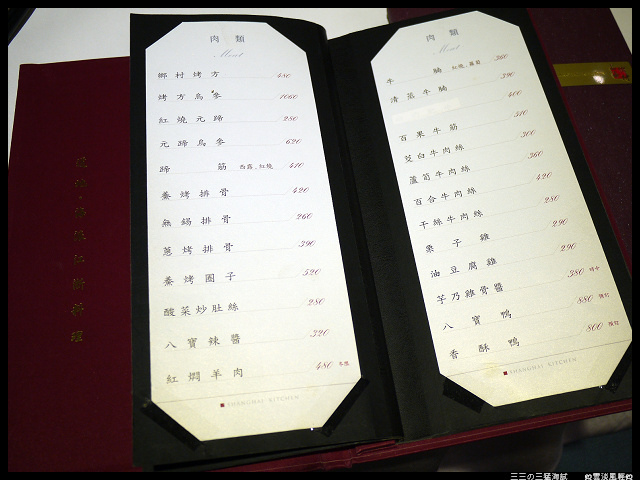 肉類
Meat
鄉村烤方 480
烤方烏參 1060
紅燒元蹄 280
元蹄烏參 620
蹄筋 西露、紅燒 410
蔥烤排骨 420
無錫排骨 260
蔥烤排骨 390
蔥烤圈子 520
酸菜炒肚絲 280
八寶辣醬 320
紅燜羊肉 480
SHANGHAI KITCHEN
肉類
Meat
牛腩 紅燒、蘿蔔 380
清蒸牛腩 390
400
百果牛筋 510
茭白牛肉絲 300
蘆筍牛肉絲 360
百合牛肉絲 420
干絲牛肉絲 280
栗子雞 290
油豆腐雞 290
芋乃雞骨醬 380 時令
八寶鴨 880 預訂
香酥鴨 800 預訂
SHANGHAI KITCHEN
三三の三猛海試
雲淡風輕